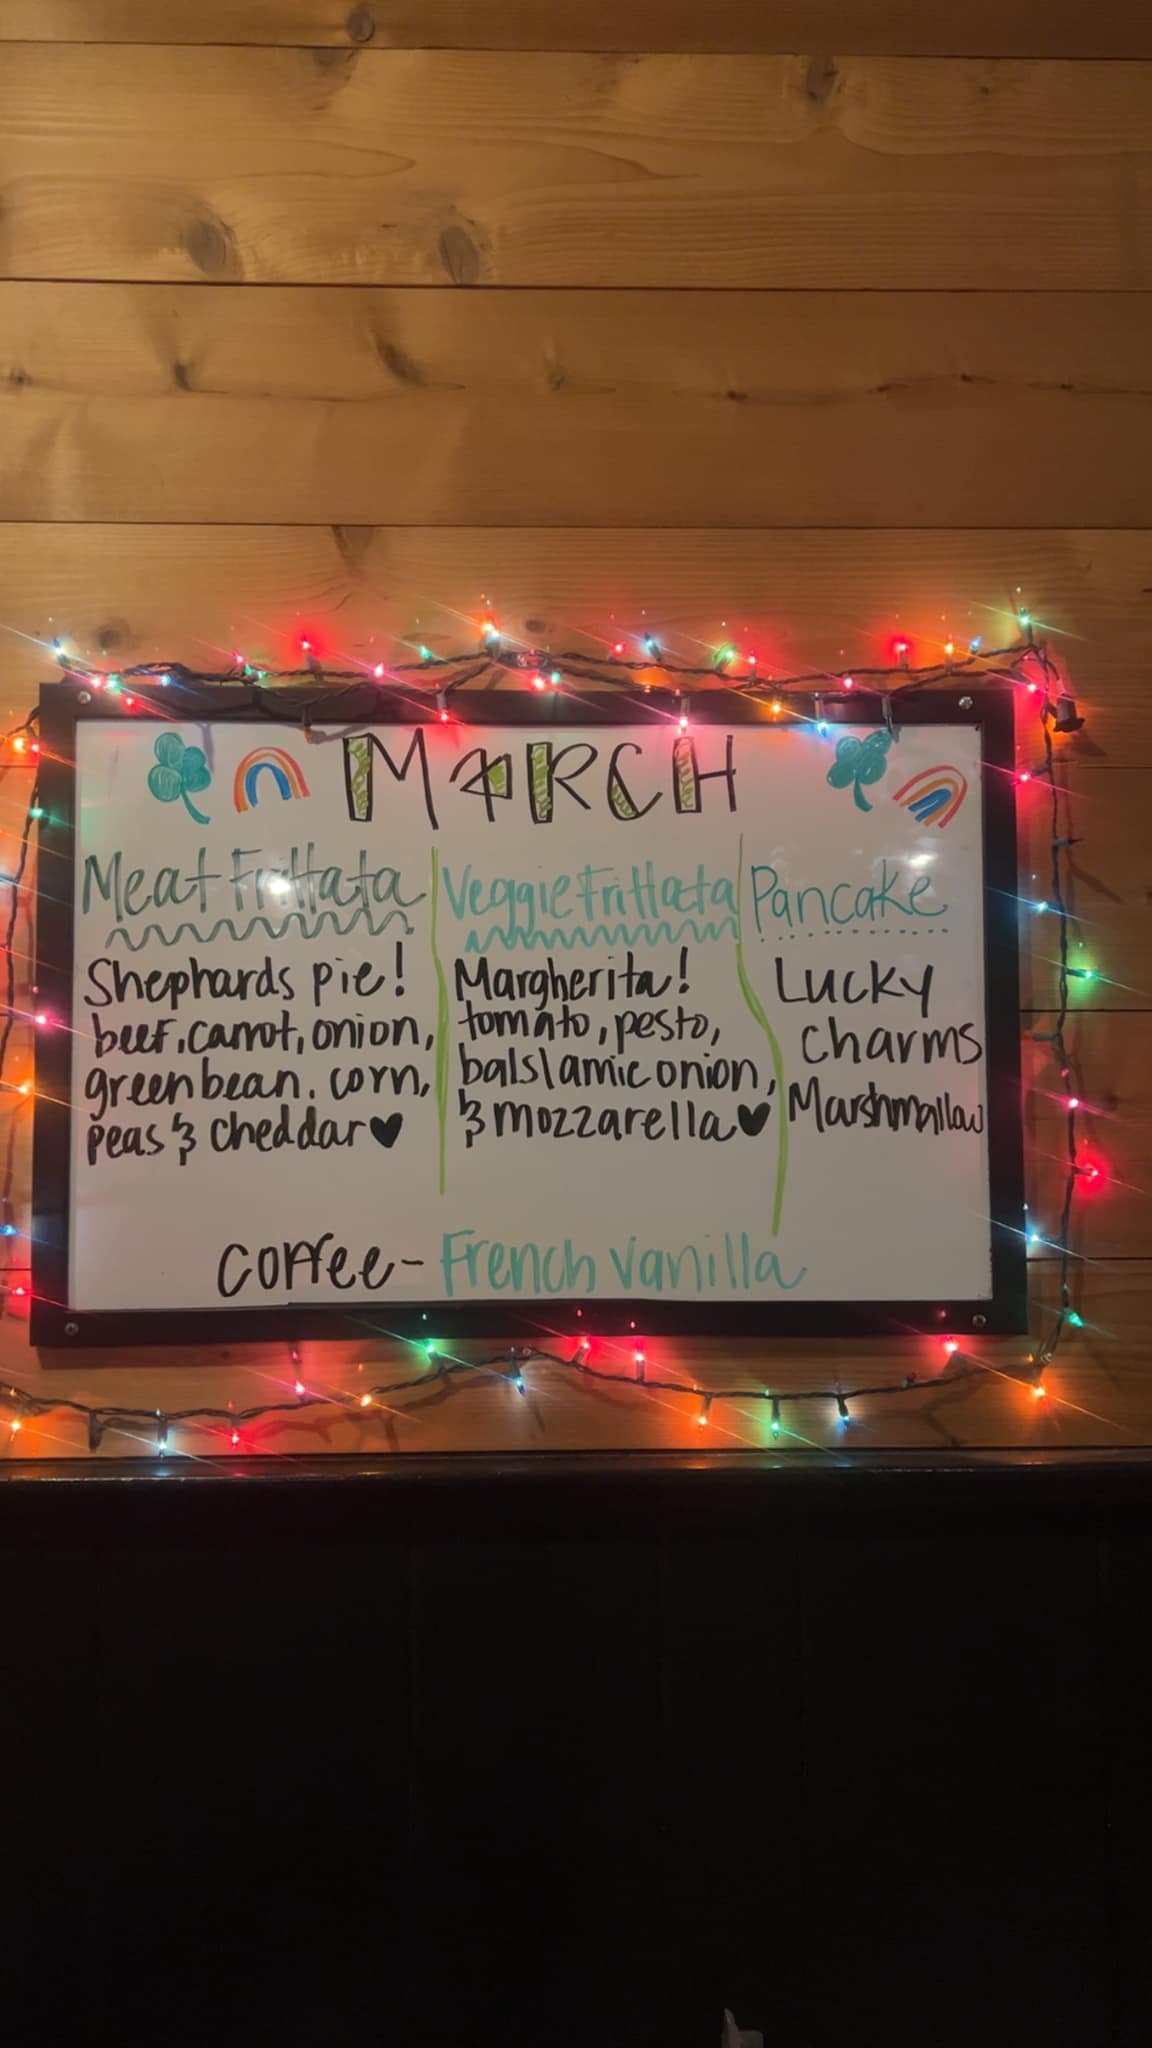 MARCH
Meat Frittata
Shephards pie!
beef, carrot, onion,
green bean. corn,
peas & cheddar♥
Veggie Frittata
Margherita!
tomato, pesto,
balslamic onion,
& mozzarella♥
Pancake
Lucky
charms
Marshmallow
Coffee- French Vanilla